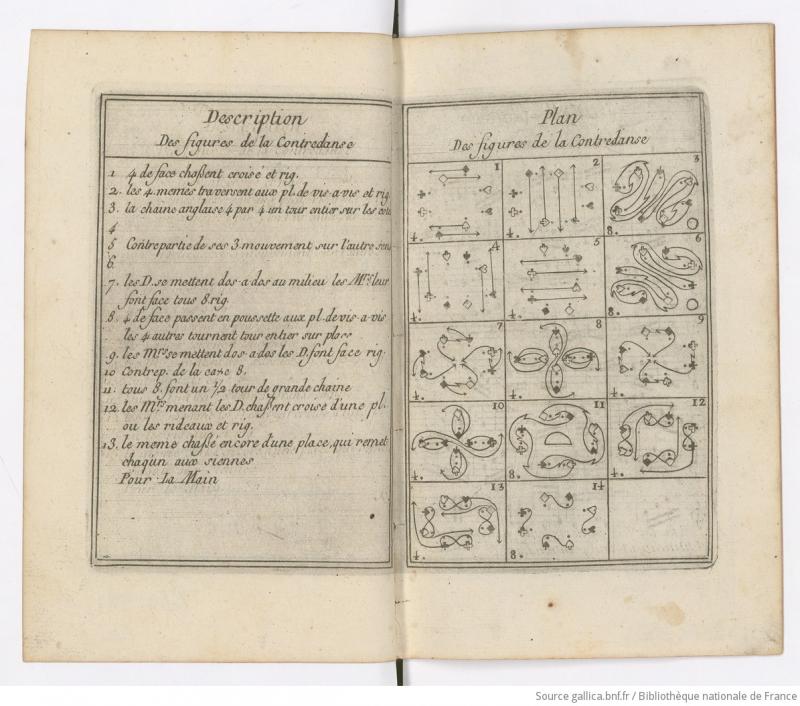 Description
Des figures de la Contredanse
1 4 de face chaßent croisé et rig.
2. les 4 memes traversent aux pl. de vis-a-vis et rig
3. la chaine anglaise 4 par 4 un tour entier sur les
4
5 Contrepartie de ses 3 mouvement sur l'autre sens
6.
7. les D. se mettent dos-a-dos au milieu les Mrs. leur
font face tous 8 rig.
8. 4 de face passent en poussette aux pl. de vis-a-vis
les 4 autres tournent tour entier sur place
9. les Mrs. se mettent dos-a-dos les D. font face rig.
10 Contrep. de la case 8.
11. tous 8. font un ½ tour de grande chaine
12. les Mrs. menant les D. chaßent croisé d'une pl.
ou les rideaux et rig.
13. le meme chaßé encore d'une place, qui remet
chaqún aux siennes
Pour La Main
Plan
Des figures de la Contredanse
1
4.
2
4.
3
8.
4
4.
5
4.
6
8.
7
4.
8
4.
9
4.
10
4.
11
8.
12
4.
13
4.
14
8.
Source gallica.bnf.fr / Bibliothèque nationale de France